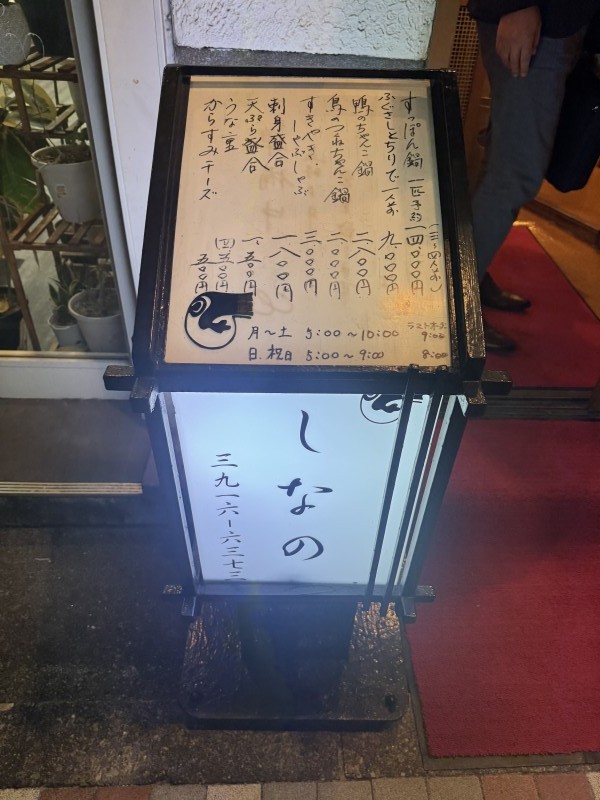 すっぽん鍋 一匹予約 (三〜四人前) 一四.〇〇〇円
ふぐさしとちりで一人前 九.〇〇〇円
鴨のちゃんこ鍋 二.八〇〇円
鳥のつくねちゃんこ鍋
すきやき・しゃぶしゃぶ 三.〇〇〇円
刺身盛合 一.八〇〇円
天ぷら盛合 一.五〇〇円
うな重
からすみチーズ 五〇〇円
月〜土 5:00〜10:00 ラストオーダー 9:00
日.祝日 5:00〜9:00 8:00
しなの
三九一六-六三七三